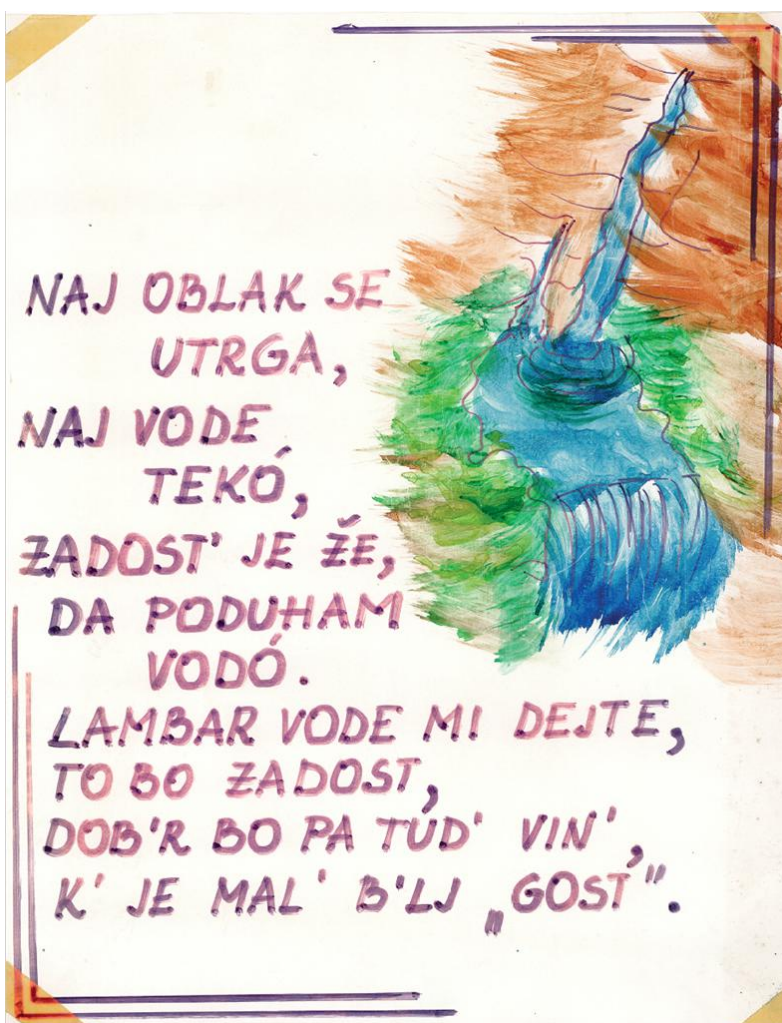 NAJ OBLAK SE
UTRGA,
NAJ VODE
TEKÓ,
ZADOST' JE ŽE,
DA PODUHAM
VODÓ.
LAMBAR VODE MI DEJTE,
TO BO ZADOST,
DOB'R BO PA TUD' VIN',
K' JE MAL' B'LJ „GOST".